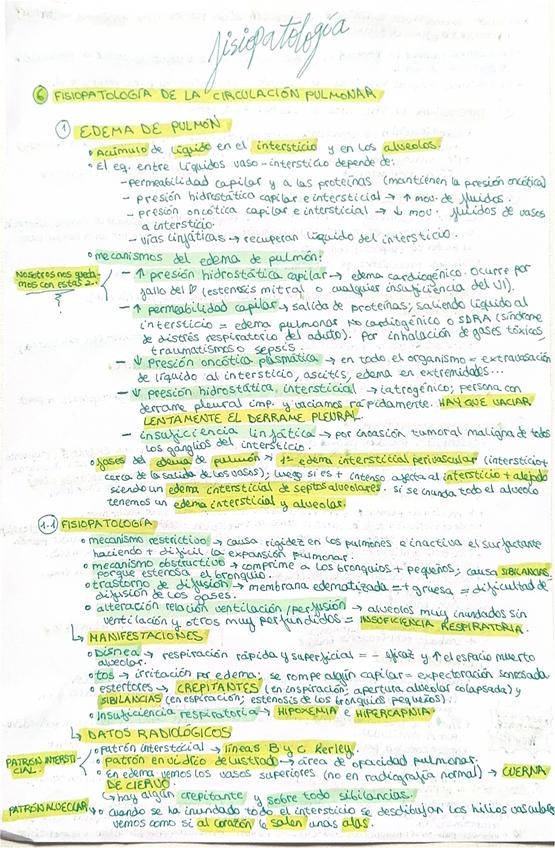 fisiopatología
6 FISIOPATOLOGÍA DE LA CIRCULACIÓN PULMONAR
1 EDEMA DE PULMÓN
• Acúmulo de líquido en el intersticio y en los alveolos.
• El eq. entre líquidos vaso-intersticio depende de:
- permeabilidad capilar y a las proteínas (mantienen la presión oncótica)
- presión hidrostática capilar e intersticial → ↑ mov. de fluidos.
- presión oncótica capilar e intersticial → ↓ mov. fluidos de vasos
a intersticio.
- vías linfáticas → recuperan líquido del intersticio.
• mecanismos del edema de pulmón:
Nosotros nos queda-
mos con estas 2.
- ↑ presión hidrostática capilar → edema cardiogénico. Ocurre por
fallo del ♡ (estenosis mitral o cualquier insuficiencia del VI).
- ↑ permeabilidad capilar → salida de proteínas; saliendo líquido al
intersticio = edema pulmonar no cardiogénico o SDRA (síndrome
de distrés respiratorio del adulto). Por inhalación de gases tóxicos,
traumatismos o sepsis.
- ↓ Presión oncótica plasmática → en todo el organismo = extravasación
de líquido al intersticio, ascitis, edema en extremidades...
- ↓ presión hidrostática intersticial → iatrogénico; persona con
derrame pleural imp. y vaciamos rápidamente. HAY QUE VACIAR
LENTAMENTE EL DERRAME PLEURAL
- insuficiencia linfática → por invasión tumoral maligna de todos
los ganglios del intersticio.
• fases del edema de pulmón → 1º edema intersticial perivascular (intersticio +
cerca de la salida de los vasos); luego si es + intenso afecta al intersticio + alejado
siendo un edema intersticial de septos alveolares. si se inunda todo el alveolo
tenemos un edema intersticial y alveolar.
1.1 FISIOPATOLOGÍA
• mecanismo restrictivo → causa rigidez en los pulmones e inactiva el surfactante
haciendo + difícil la expansión pulmonar.
• mecanismo obstructivo → comprime a los bronquios + pequeños; causa SIBILANCIAS
porque estenosa el bronquio.
• trastorno de difusión → membrana edematizada = + gruesa = dificultad de
difusión de los gases.
• alteración relación ventilación/perfusión → alveolos muy inundados sin
ventilación y otros muy perfundidos = INSUFICIENCIA RESPIRATORIA.
↳ MANIFESTACIONES
• Disnea → respiración rápida y superficial = - eficaz y ↑ el espacio muerto
alveolar.
• tos → irritación por edema; se rompe algún capilar = expectoración sonrosada
• estertores → CREPITANTES (en inspiración; apertura alveolar colapsada) y
SIBILANCIAS (en espiración; estenosis de los bronquios pequeños).
• Insuficiencia respiratoria → HIPOXEMIA e HIPERCAPNIA
↳ DATOS RADIOLÓGICOS
PATRÓN INTERSTI
CIAL.
• patrón intersticial → líneas B y C Kerley.
• Patrón en vidrio deslustrado → área de opacidad pulmonar.
• En edema vemos los vasos superiores (no en radiografía normal) → CUERNA
DE CIERVO
↳ hay algún crepitante y sobre todo sibilancias.
PATRÓN ALVEOLAR
• cuando se ha inundado todo el intersticio se desdibujan los hilios vasculares
vemos como si al corazón le salen unas alas.